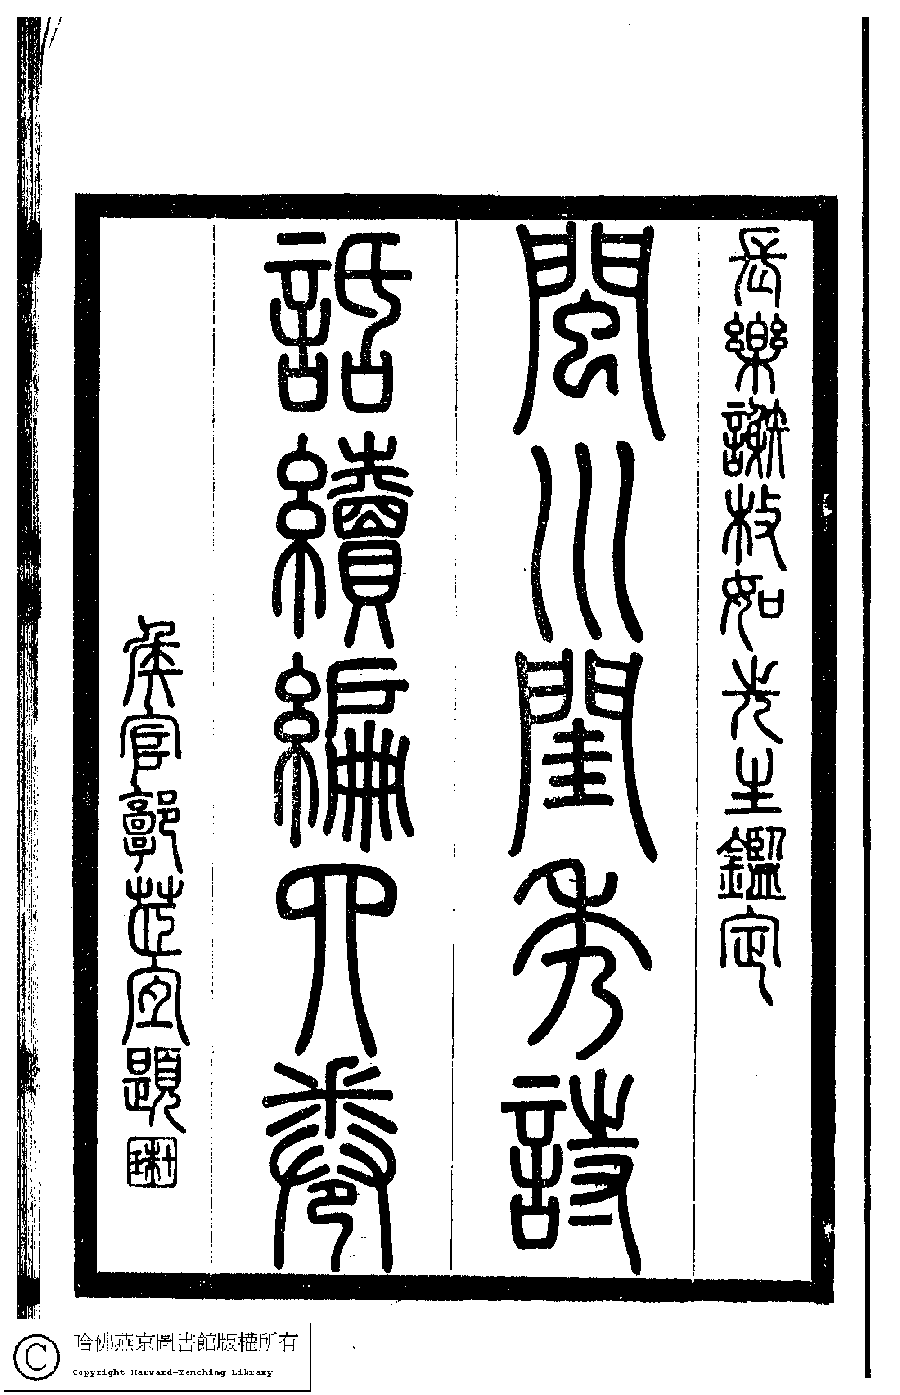 長樂謝枚如先生鑑定
閩川閨秀詩
話續編四卷
侯官郭題
哈佛燕京圖書館版權所有
Copyright Harvard-Yenching Library
©